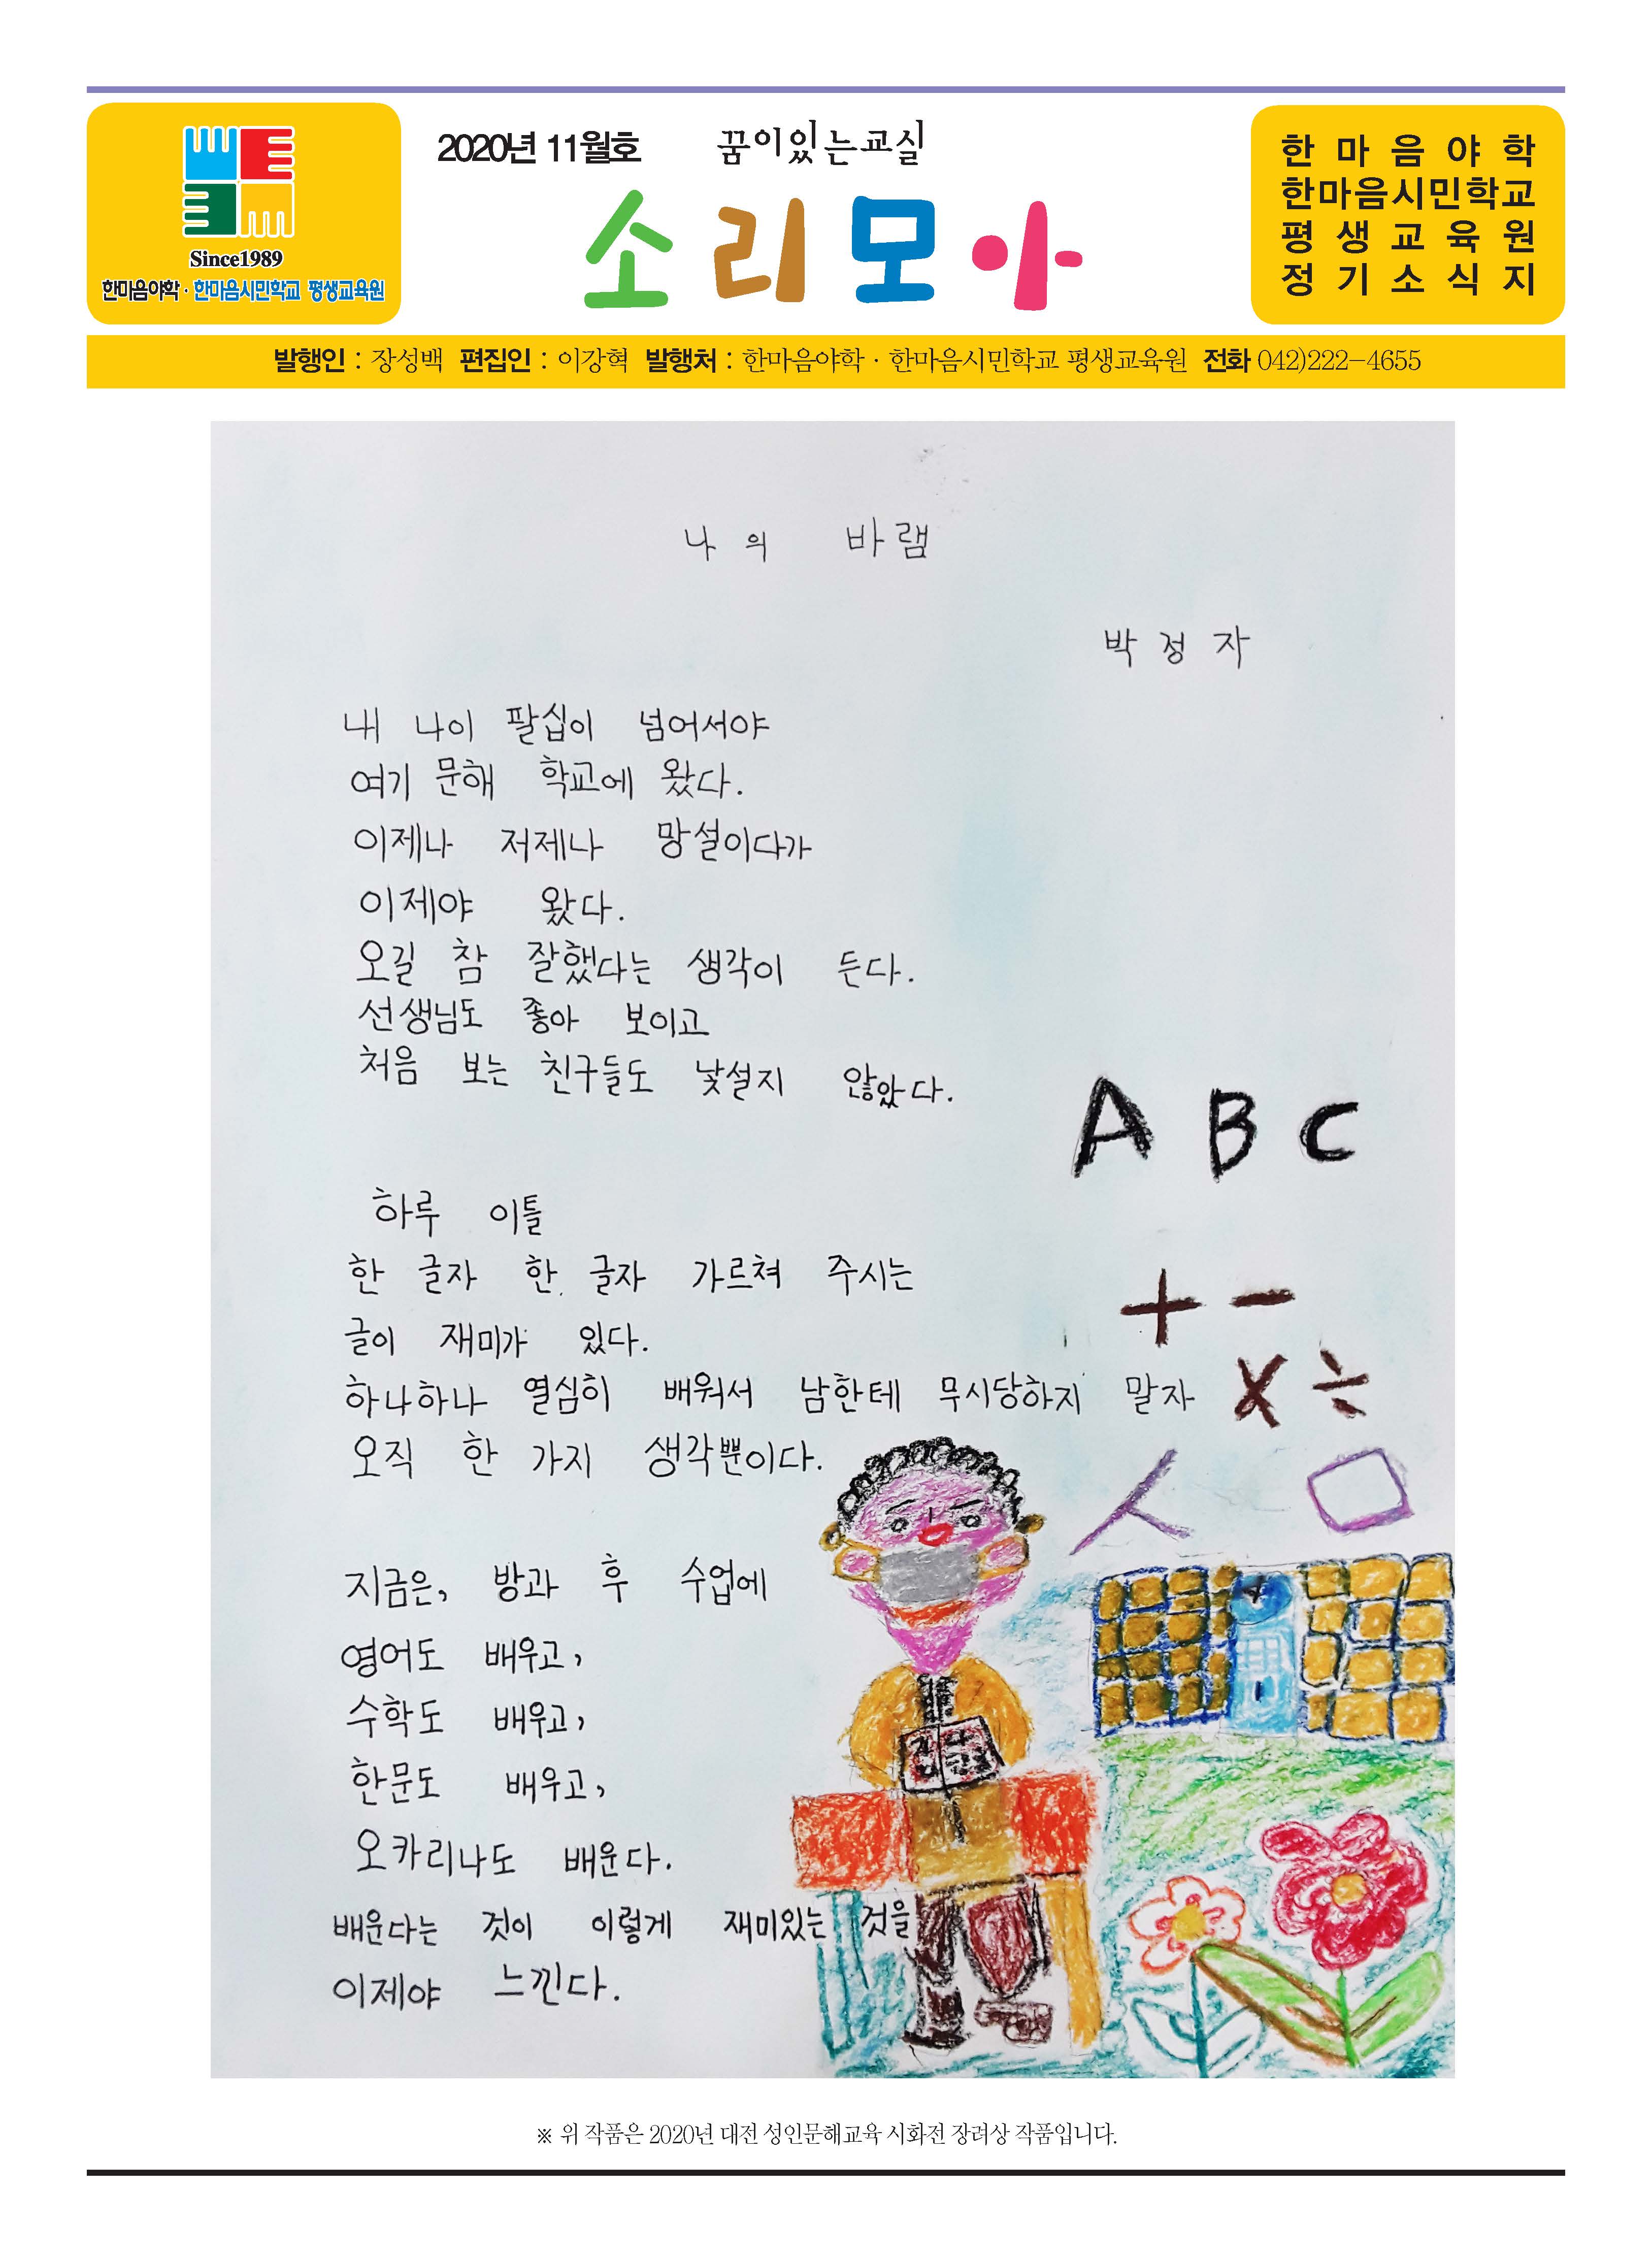 Since1989
한마음야학 · 한마음시민학교 평생교육원
2020년 11월호
꿈이있는교실
소리모아
한마음야학
한마음시민학교
평생교육원
정기소식지
발행인 : 장성백 편집인 : 이강혁 발행처 : 한마음야학 · 한마음시민학교 평생교육원 전화 042)222-4655
나의 바램
박정자
내 나이 팔십이 넘어서야
여기 문해 학교에 왔다.
이제나 저제나 망설이다가
이제야 왔다.
오길 참 잘했다는 생각이 든다.
선생님도 좋아 보이고
처음 보는 친구들도 낯설지 않았다.
A B C
하루 이틀
한 글자 한 글자 가르쳐 주시는
글이 재미가 있다.
하나하나 열심히 배워서 남한테 무시당하지 말자
오직 한 가지 생각뿐이다.
+ -
× ÷
ㅅ ㅁ
지금은, 방과 후 수업에
영어도 배우고,
수학도 배우고,
한문도 배우고,
오카리나도 배운다.
배운다는 것이 이렇게 재미있는 것을
이제야 느낀다.
※ 위 작품은 2020년 대전 성인문해교육 시화전 장려상 작품입니다.